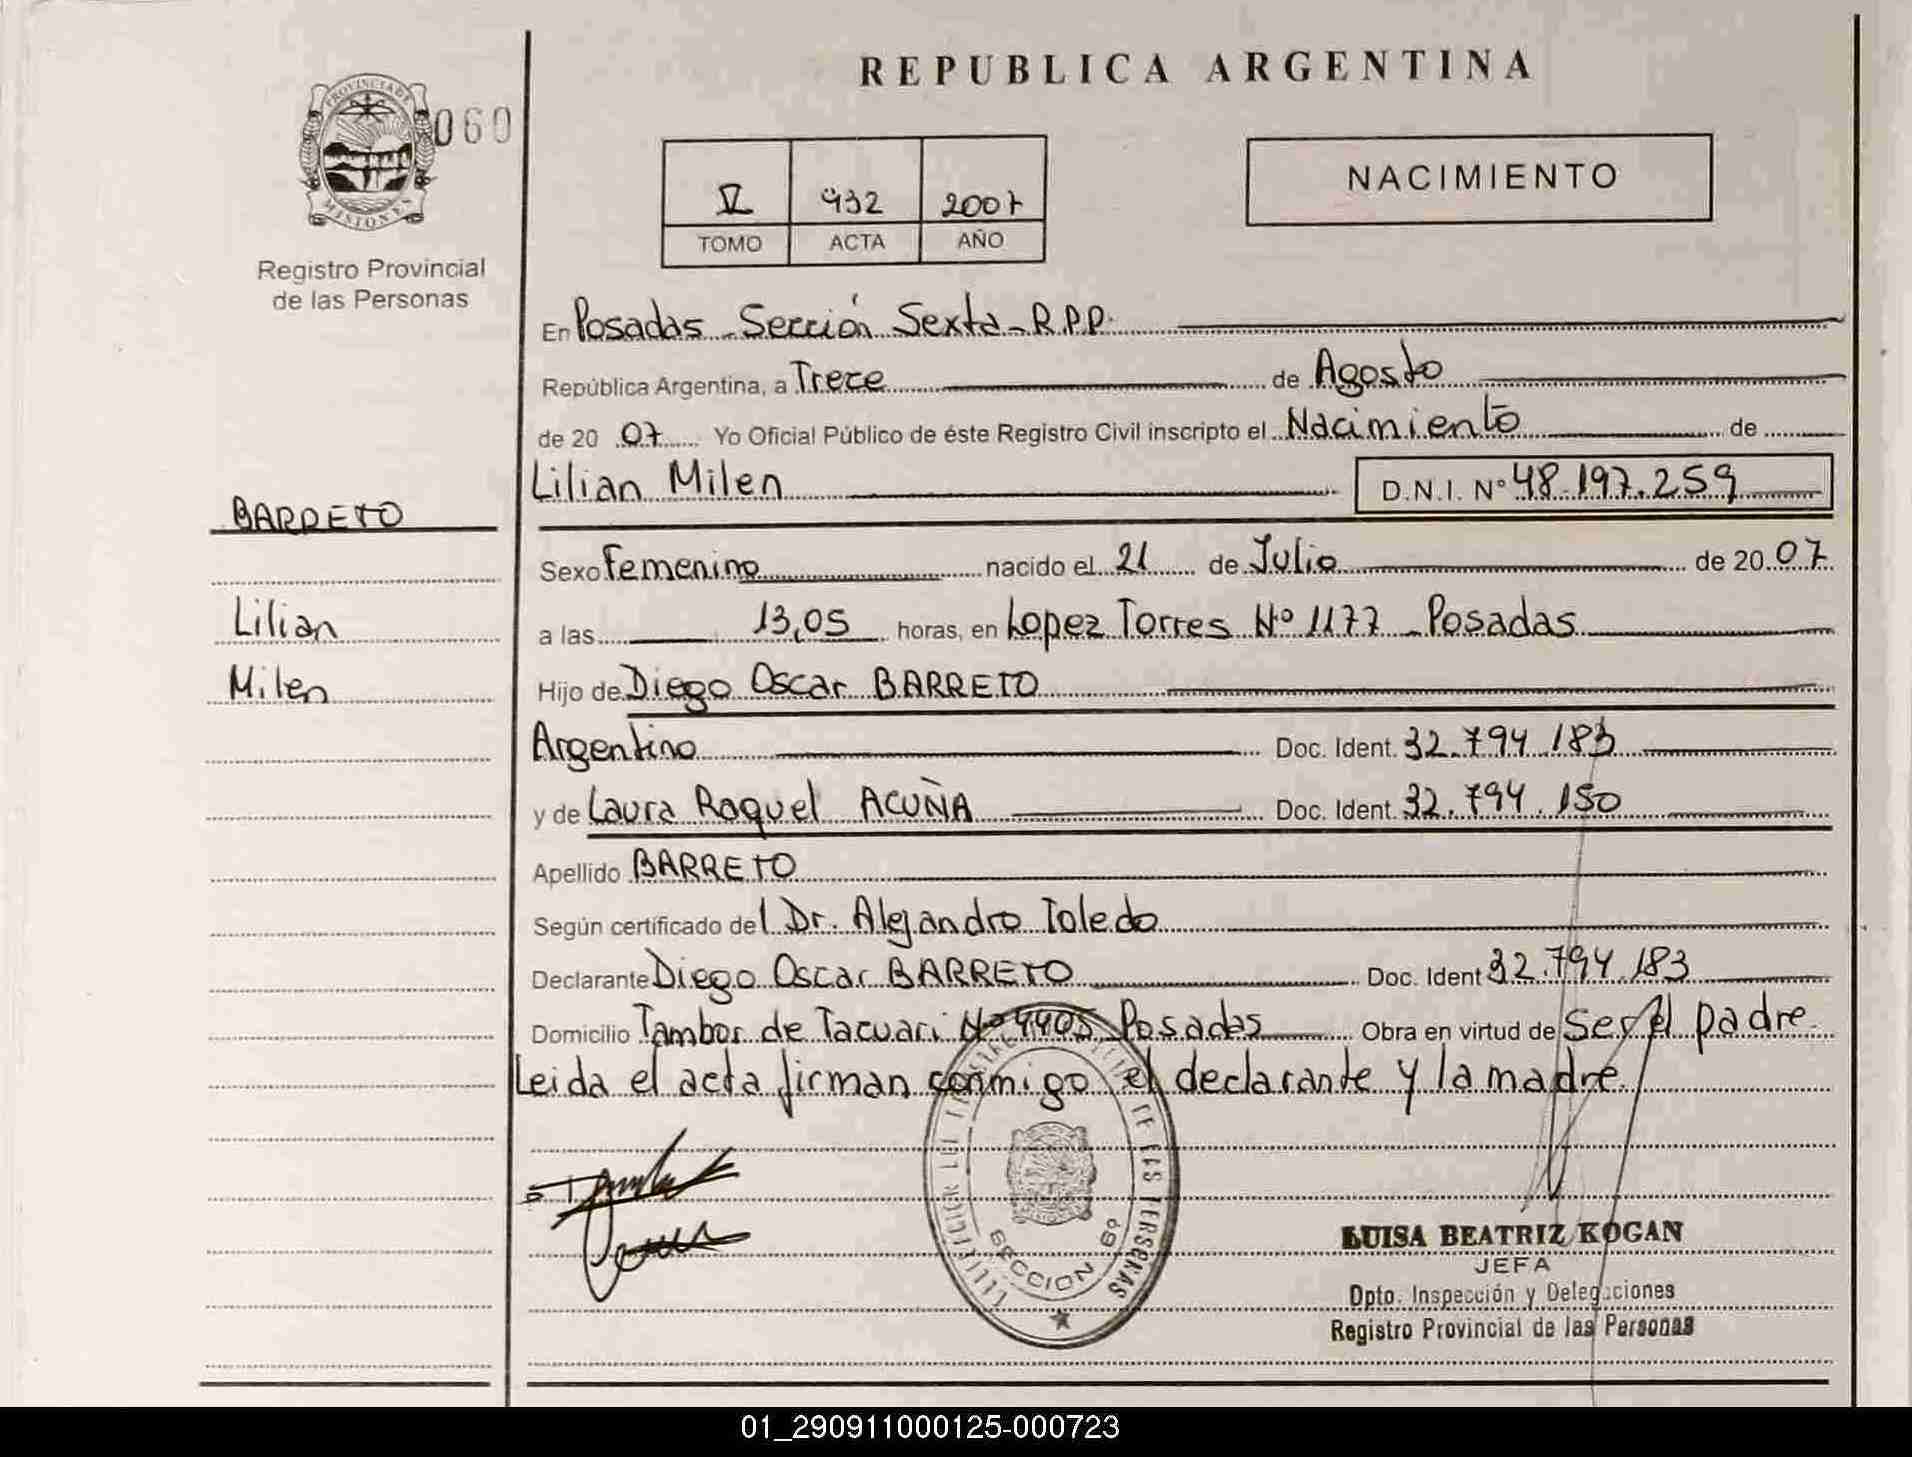 REPUBLICA ARGENTINA
PROVINCIA DE
MISIONES
060
Registro Provincial
de las Personas
V 932 2007
TOMO ACTA AÑO
NACIMIENTO
En Posadas - Sección Sexta - R.P.P.
República Argentina, a Trece de Agosto
de 20 07 Yo Oficial Público de éste Registro Civil inscripto el Nacimiento de
Lilian Milen D.N.I. Nº 48.197.259
BARRETO
Lilian
Milen
Sexo Femenino nacido el 21 de Julio de 20 07
a las 13,05 horas, en Lopez Torres Nº 1177 - Posadas
Hijo de Diego Oscar BARRETO
Argentino Doc. Ident. 32.794.183
y de Laura Raquel ACUÑA Doc. Ident. 32.794.150
Apellido BARRETO
Según certificado del Dr. Alejandro Toledo
Declarante Diego Oscar BARRETO Doc. Ident 32.794.183
Domicilio Tambor de Tacuari Nº 4405 Posadas Obra en virtud de ser el padre
Leida el acta firman conmigo el declarante y la madre.
DE LAS PERSONAS
SECCION 6º
LUISA BEATRIZ KOGAN
JEFA
Dpto. Inspección y Delegaciones
Registro Provincial de las Personas
01_290911000125-000723